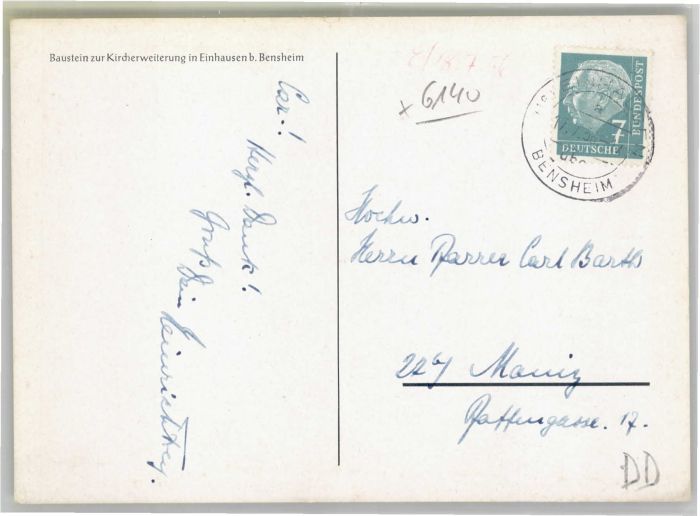 Baustein zur Kircherweiterung in Einhausen b. Bensheim
Car.!
Herzl. Dank!
Gruß
Dein
6140
7
DEUTSCHE
BUNDESPOST
BENSHEIM
Hochw.
Herrn Pfarrer Carl Barth
22b/ Mainz
Pfaffengasse. 17.
DD